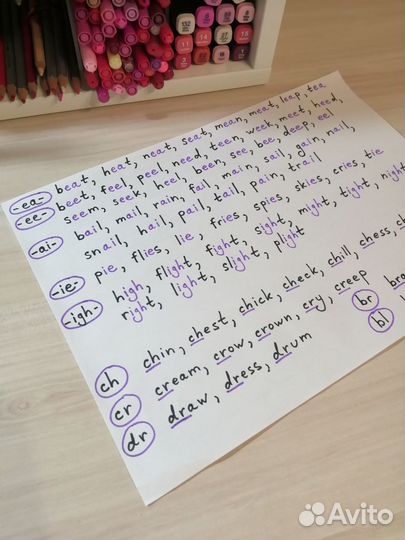 -ea- beat, heat, neat, seat, mean, meat, leap, tea
-ee- beet, feel, peel, need, teen, week, meet, heed,
seem, seek, heel, been, see, bee, deep, eel
-ai- bail, mail, rain, fail, main, sail, gain, nail,
snail, hail, pail, tail, pain, trail
-ie- pie, flies, lie, fries, spies, skies, cries, tie
-igh- high, flight, fight, sight, might, tight, night
right, light, slight, plight
ch chin, chest, chick, check, chill, chess,
cr cream, crow, crown, cry, creep
dr draw, dress, drum
br
bl
Avito